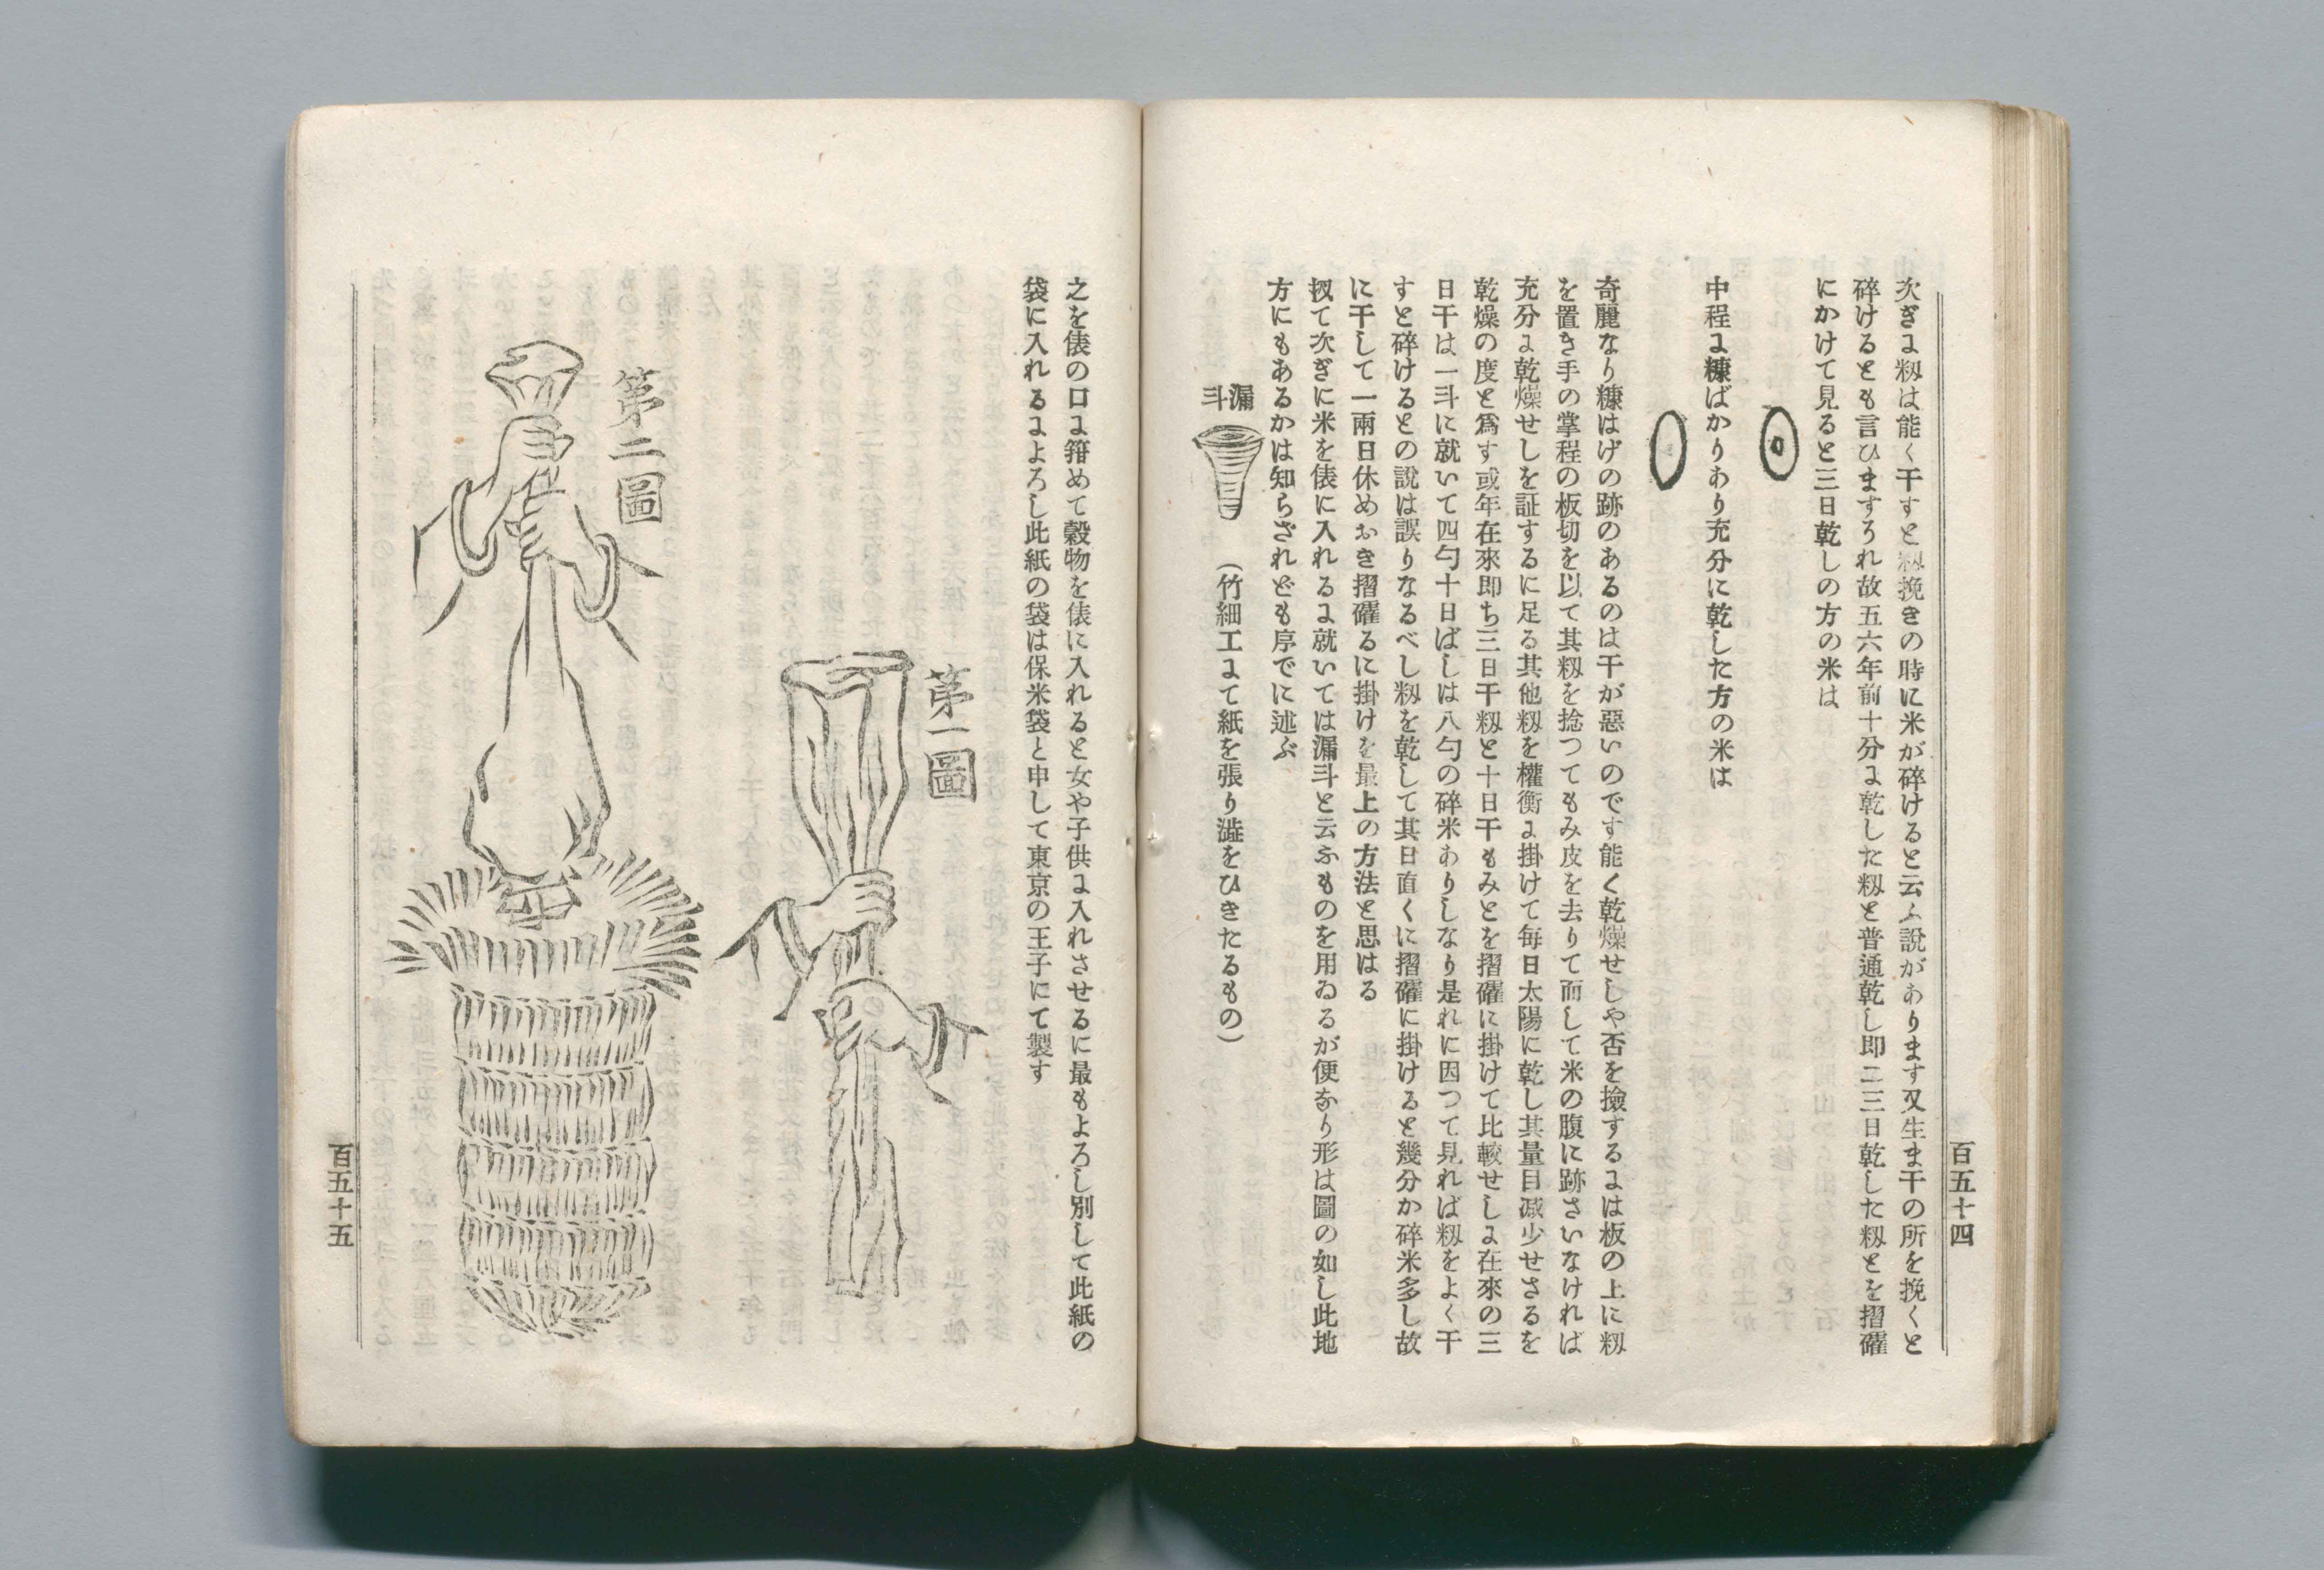 百五十四
次ぎに籾は能く干すと籾挽きの時に米が碎けると云ふ說があります又生ま干の所を挽くと
碎けるとも言ひますろれ故五六年前十分に乾した籾と普通乾し即二三日乾した籾とを摺礶
にかけて見ると三日乾しの方の米は
中程に糠ばかりあり充分に乾した方の米は
奇麗なり糠はげの跡のあるのは干が惡いのです能く乾燥せしや否を撿するには板の上に籾
を置き手の掌程の板切を以て其籾を捻つてもみ皮を去りて而して米の腹に跡さいなければ
充分に乾燥せしを証するに足る其他籾を權衡に掛けて每日太陽に乾し其量目減少せさるを
乾燥の度と爲す或年在來即ち三日干籾と十日干もみとを摺礶に掛けて比較せしに在來の三
日干は一斗に就いて四勺十日ばしは八勺の碎米ありしなり是れに因つて見れば籾をよく干
すと碎けるとの說は誤りなるべし籾を乾して其日直くに摺礶に掛けると幾分か碎米多し故
に干して一兩日休めおき摺礶るに掛けを最上の方法と思はる
扨て次ぎに米を俵に入れるに就いては漏斗と云ふものを用ゐるが便なり形は圖の如し此地
方にもあるかは知らざれども序でに述ぶ
漏斗
(竹細工にて紙を張り澁をひきたるもの)
之を俵の口に箝めて穀物を俵に入れると女や子供に入れさせるに最もよろし別して此紙の
袋に入れるによろし此紙の袋は保米袋と申して東京の王子にて製す
第一圖
第二圖
百五十五